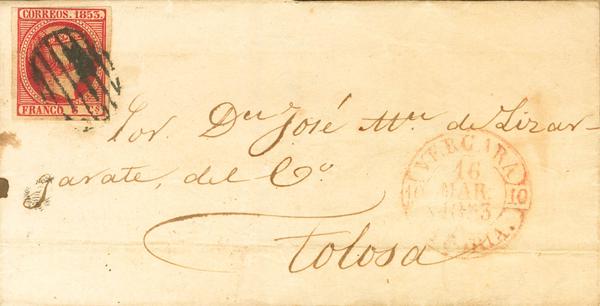 CORREOS. 1853.
FRANCO. 6 Cs
Sor. Dn José Ma. de Lizar-
zarate, del Co.
Tolosa
VERGARA
10 16 10
MAR.
1853